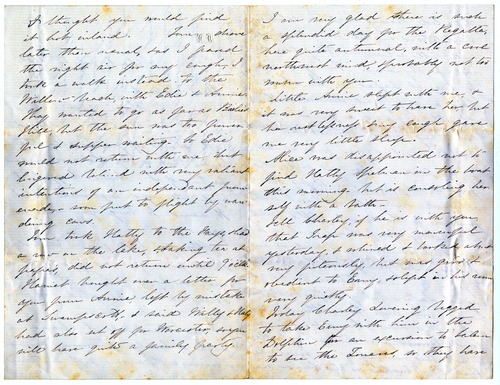 I thought you would find
it hot inland. Tom drove
later than usual, & as I feared
the night air for my cough, I
took a walk instead to the
Willow road, with Edie & Annie.
They wanted to go as far as
but the sun was too power-
ful & supper waiting. So Edie
would not return with me, but
lingered behind with very valiant
intentions of an independent prom-
enade, soon put to flight by wan-
dering cows.
Tom took Hatty to the
a row on the lake, & taking tea at
did not return until 9 oclk.
Harriet brought over a letter for
you from Annie left by mistake
at Swampscott, & said Willy &
had also set off for Worcester, so you
will have quite a family party.
I am very glad there is such
a splendid day for the Regatta,
here quite autumnal, with a cool
northwest wind, probably not too
warm with you.
Little Annie slept with me, &
it was very sweet to have her, but
her restlessness & my cough gave
me very little sleep.
Alice was disappointed not to
find Hatty in the boat
this morning, but is consoling her-
self with a bath.
Tell Charley, if he is with you,
that Trap was very mournful
yesterday, & whined & looked about
very piteously, but was good &
obedient to Erny, & slept in his room
very quietly.
Today Charley Loring begged
to take Erny with him in the
Dolphin for an excursion to Salem
to see the so they have